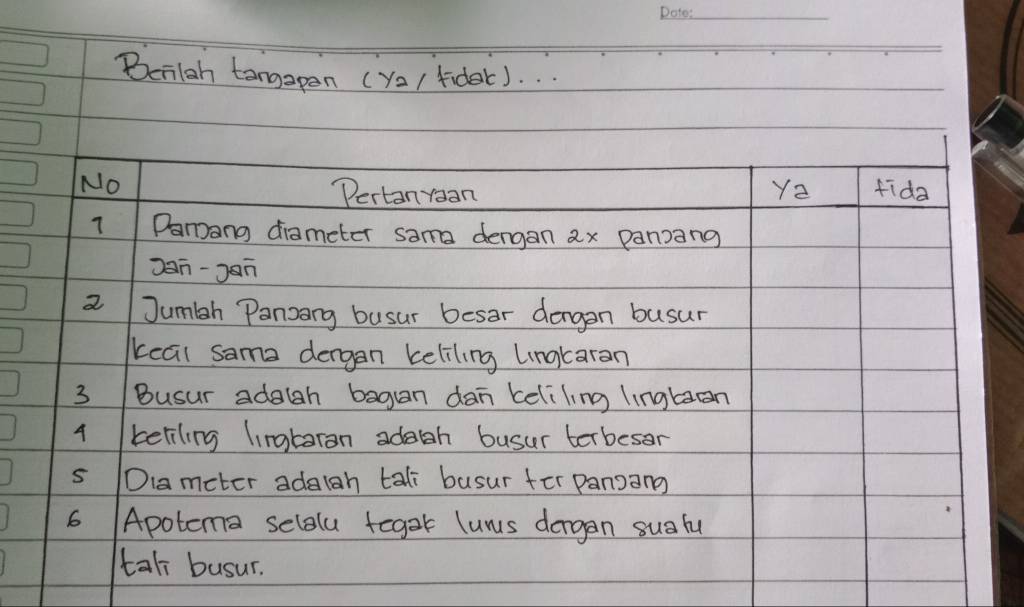 Date:
Berilah tangapan (Ya / tidak)...
No Pertanyaan Ya tida
1 Panjang diameter sama dengan 2x panjang
jari - jari
2 Jumlah Panjang busur besar dengan busur
kecil sama dengan keliling lingkaran
3 Busur adalah bagian dari keliling lingkaran
4 keliling lingkaran adalah busur terbesar
5 Diameter adalah tali busur ter panjang
6 Apotema selalu tegak lurus dengan suatu
tali busur.